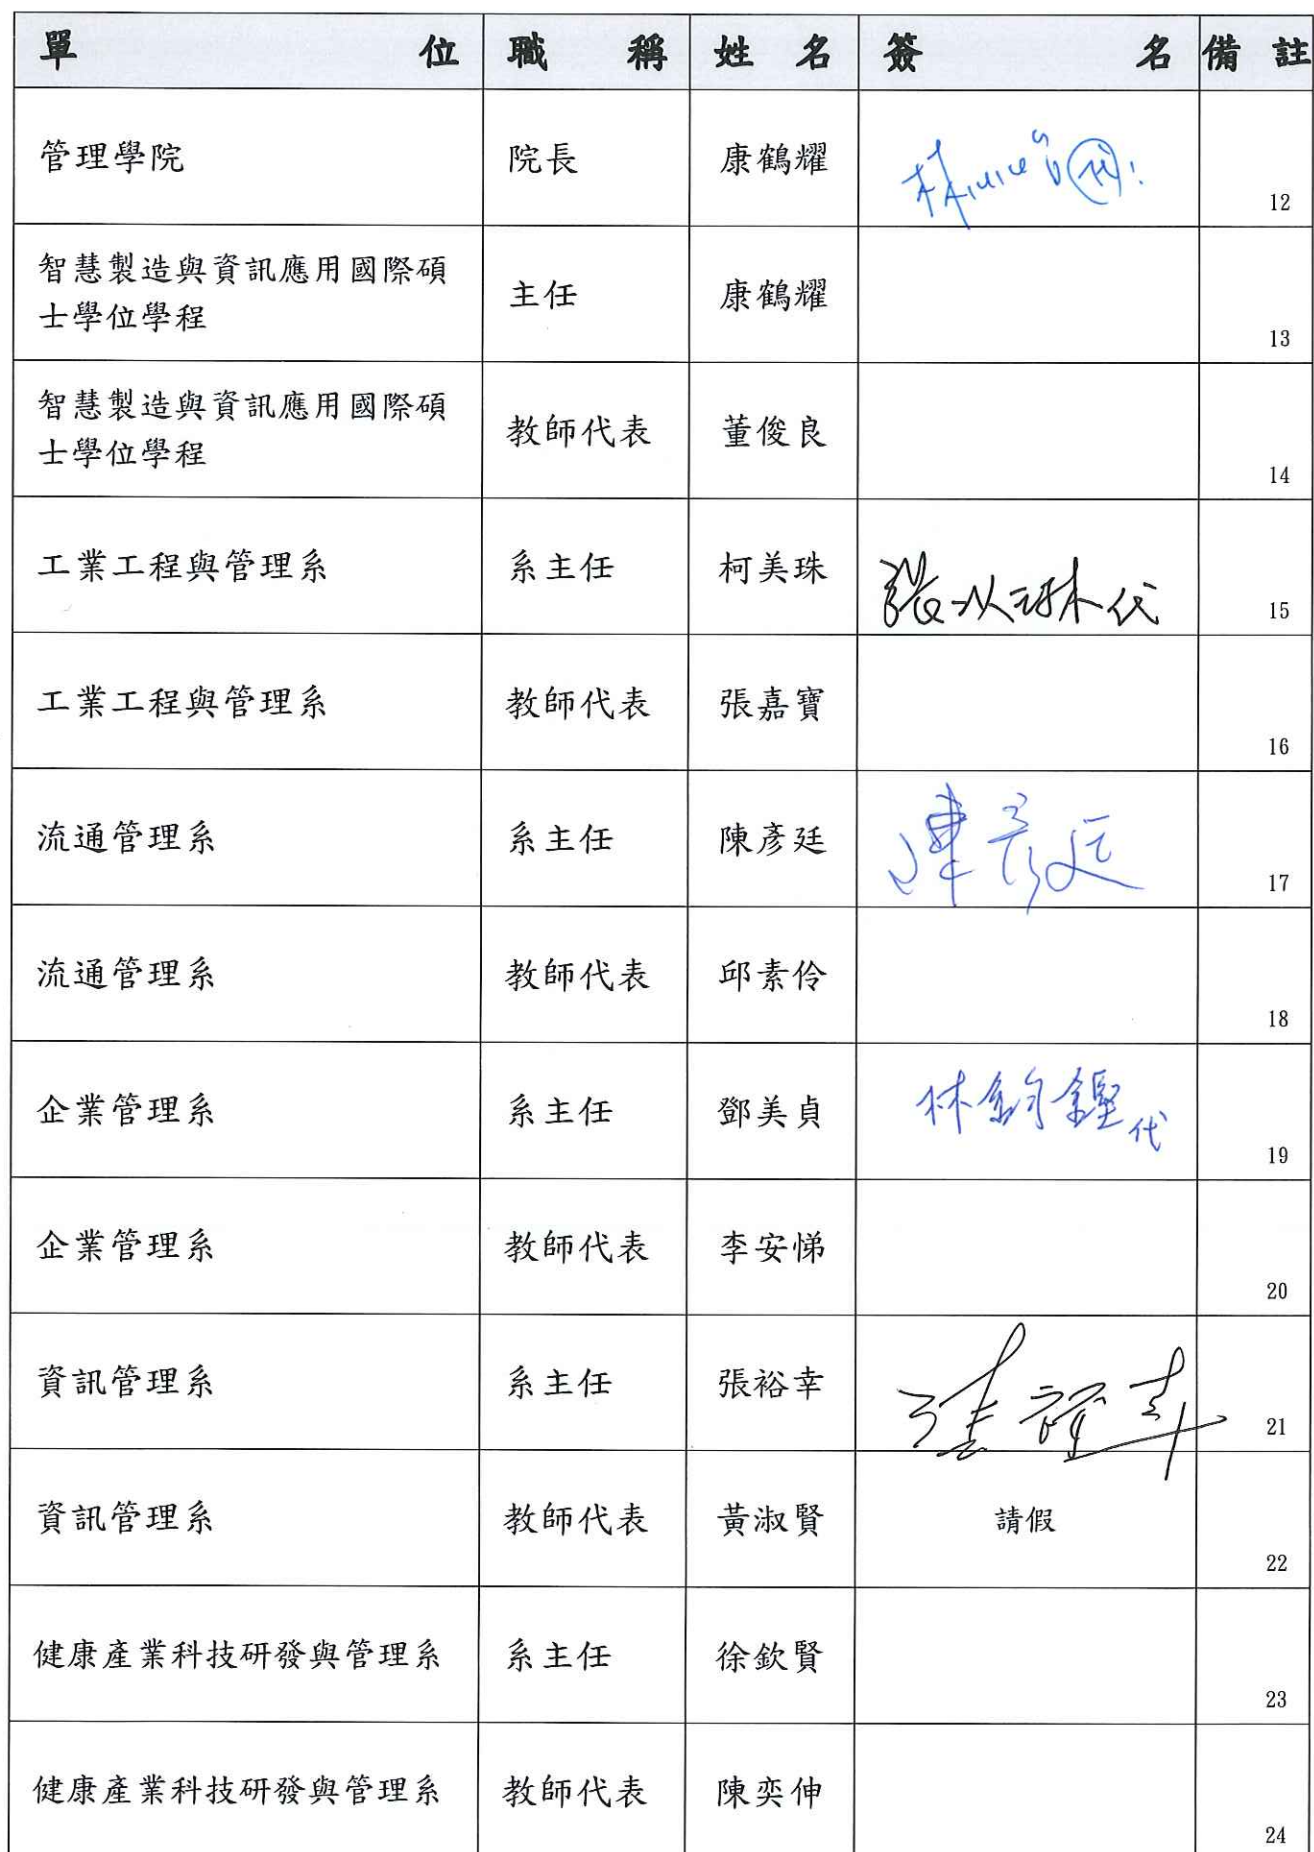 單位 職稱 姓名 簽名 備註
管理學院 院長 康鶴耀 12
智慧製造與資訊應用國際碩
士學位學程 主任 康鶴耀 13
智慧製造與資訊應用國際碩
士學位學程 教師代表 董俊良 14
工業工程與管理系 系主任 柯美珠 代 15
工業工程與管理系 教師代表 張嘉寶 16
流通管理系 系主任 陳彥廷 陳彥廷 17
流通管理系 教師代表 邱素伶 18
企業管理系 系主任 鄧美貞 林鈞鏗代 19
企業管理系 教師代表 李安悌 20
資訊管理系 系主任 張裕幸 張裕幸 21
資訊管理系 教師代表 黃淑賢 請假 22
健康產業科技研發與管理系 系主任 徐欽賢 23
健康產業科技研發與管理系 教師代表 陳奕伸 24